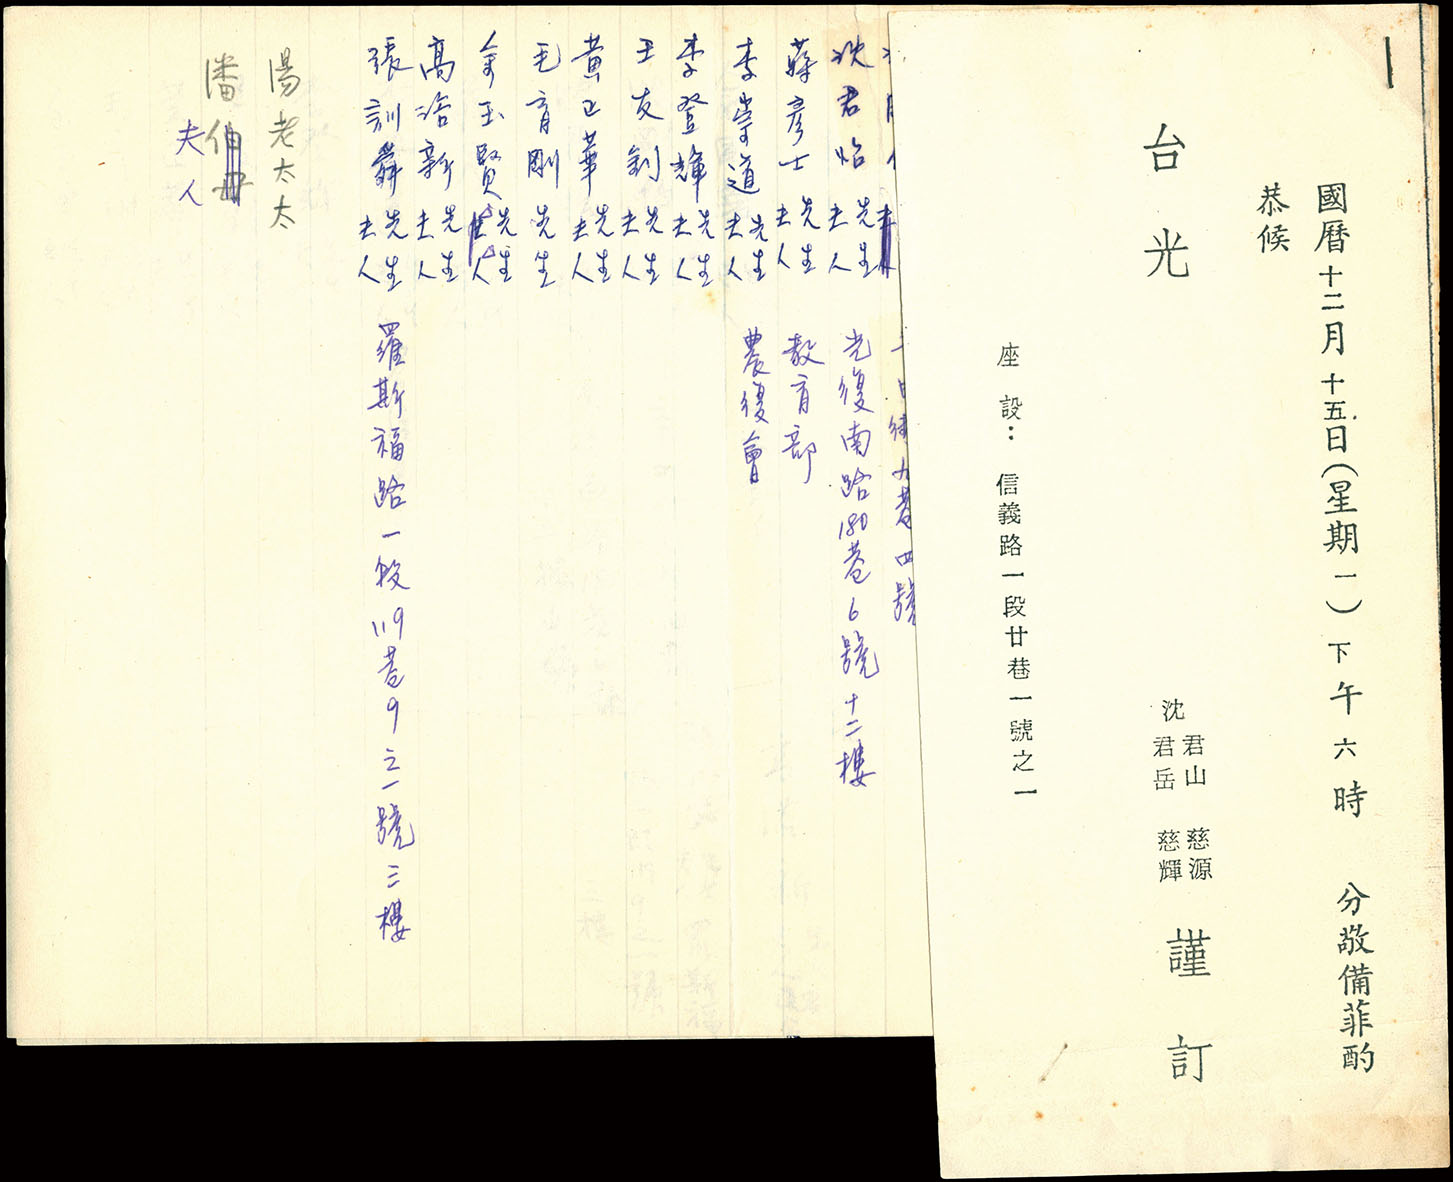 國曆十二月十五日（星期一）下午六時　分敬備菲酌
恭候
台光
沈
君山　慈源
君岳　慈輝
謹訂
座設：信義路一段廿巷一號之一
巷四號
沈君怡先生夫人　光復南路180巷6號十二樓
蔣彥士先生夫人　教育部
李崇道先生夫人　農復會
李登輝先生夫人
王友釗先生夫人
黃正華先生夫人
毛育剛先生
余玉賢先生夫人
高浴新先生夫人
張訓舜先生夫人　羅斯福路一段119巷9之一號三樓
湯老太太
潘伯母
夫人